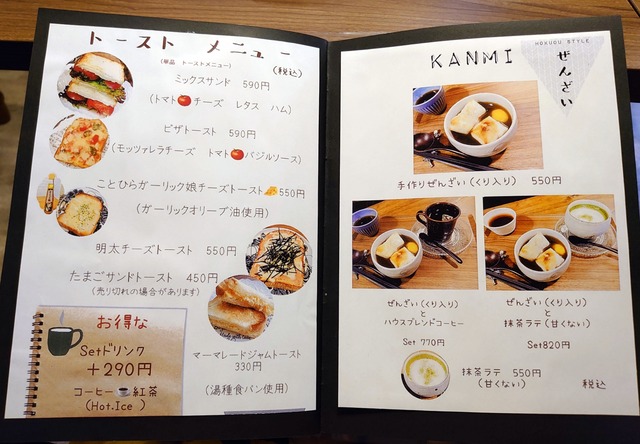 トースト メニュー
(単品 トーストメニュー)
(税込)
ミックスサンド 590円
(トマト🍅チーズ レタス ハム)
ピザトースト 590円
(モッツァレラチーズ トマト🍅バジルソース)
ことひらガーリック娘チーズトースト🧀550円
(ガーリックオリーブ油使用)
明太チーズトースト 550円
たまごサンドトースト 450円
(売り切れの場合があります)
お得な
Setドリンク
+290円
コーヒー☕紅茶
(Hot.Ice )
マーマレードジャムトースト
330円
(湯種食パン使用)
KANMI
HOKUOU STYLE
ぜんざい
手作りぜんざい(くり入り) 550円
ぜんざい(くり入り)
と
ハウスブレンドコーヒー
Set 770円
ぜんざい(くり入り)
と
抹茶ラテ(甘くない)
Set820円
抹茶ラテ 550円
(甘くない)
税込